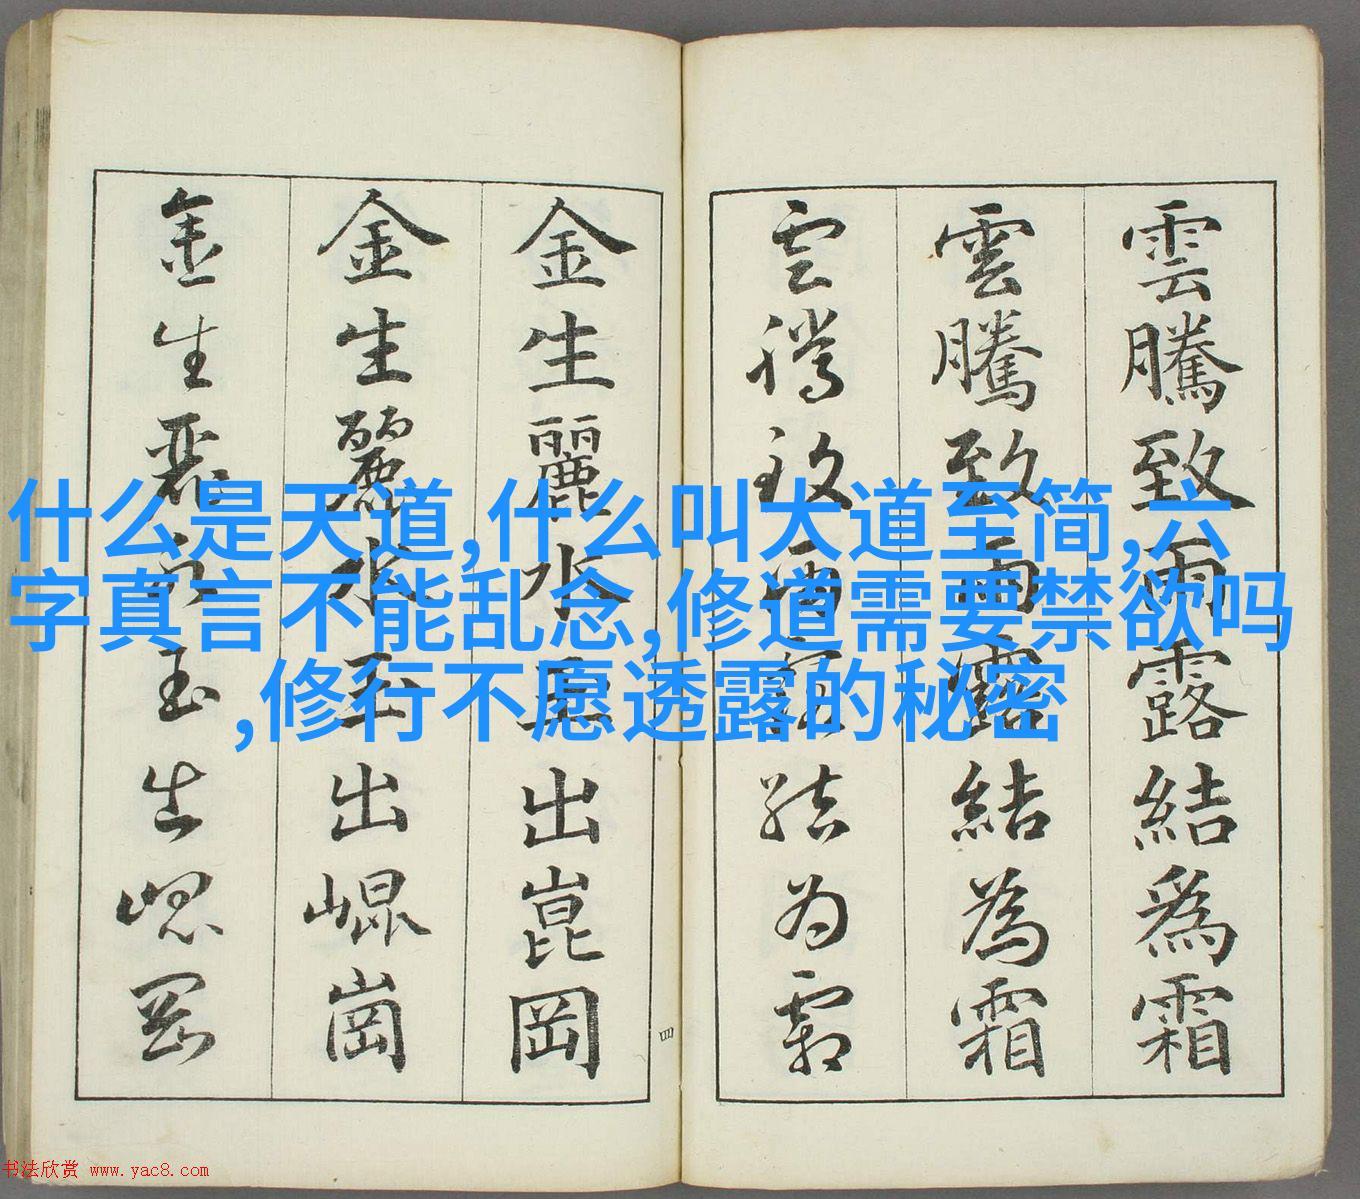 雲騰致雨露結爲霜
雲騰致雨露結為霜
雲騰致雨露結為霜
四
金生麗水玉出崑岡
金生麗水玉出崐崗
金生麗水玉出崐岡
什么是天道,什么叫大道至简,六
字真言不能乱念,修道需要禁欲吗
,修行不愿透露的秘密
书法欣赏 www.yac8.com